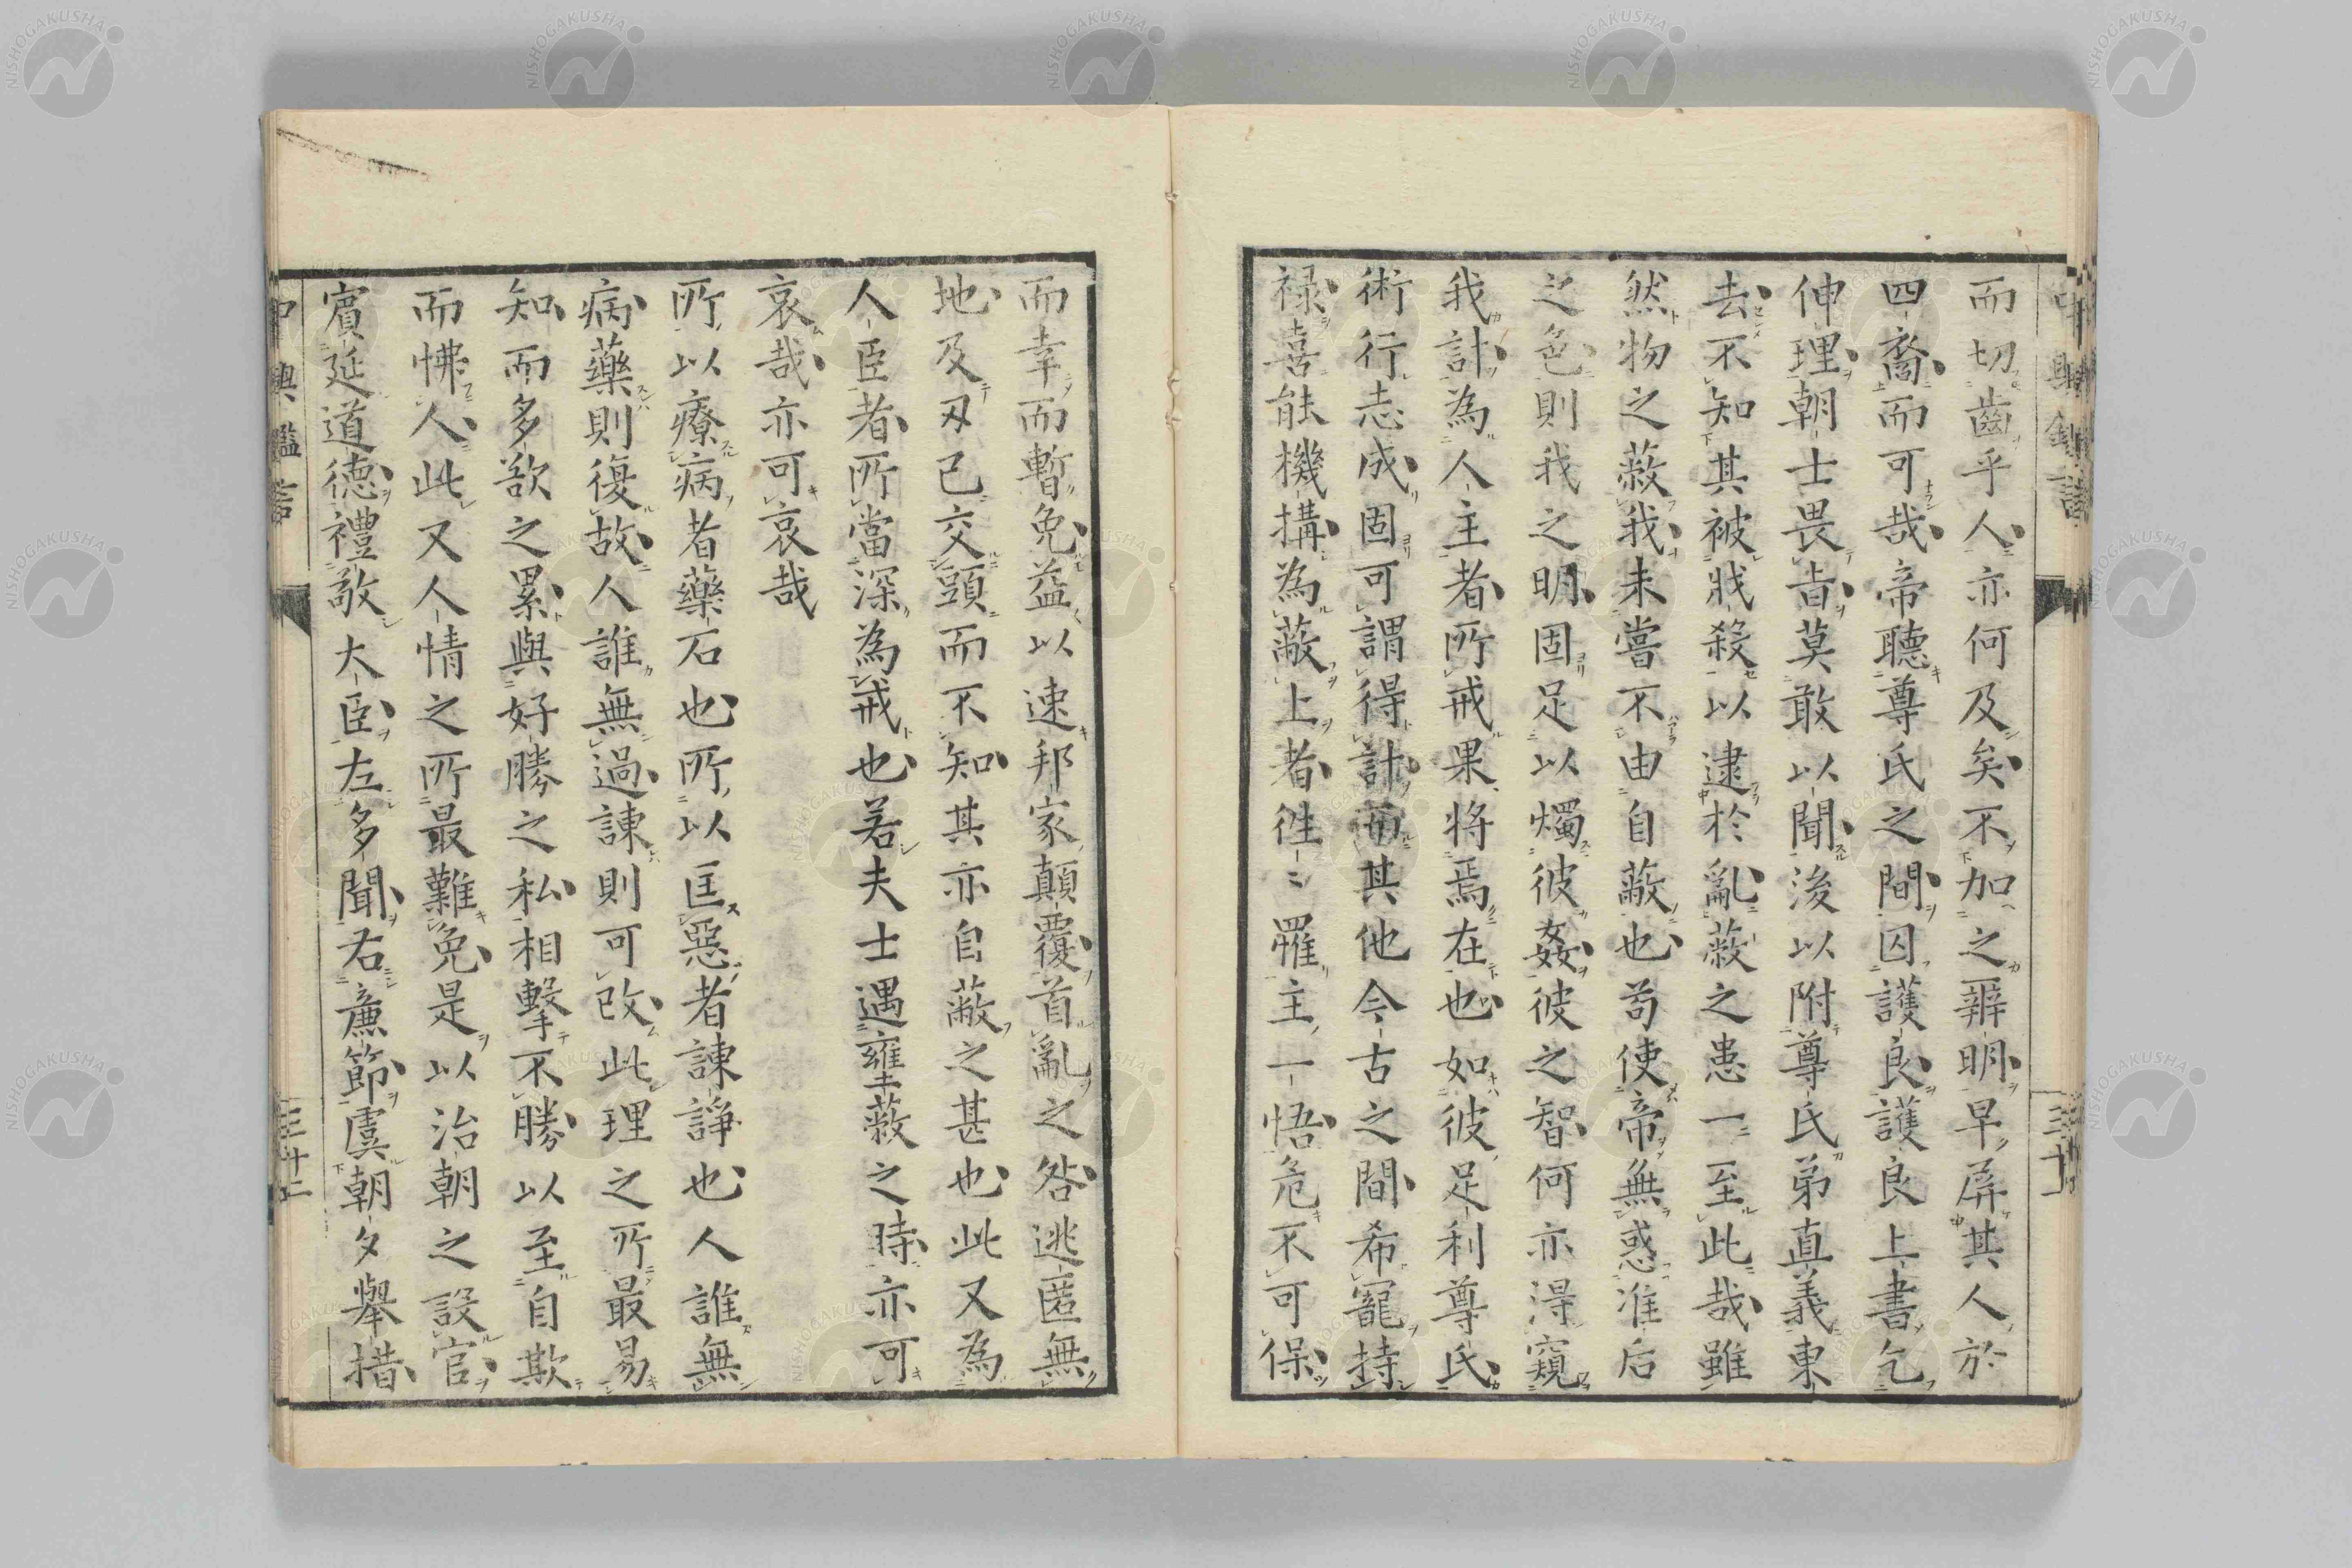 而切齒乎人亦何及矣不加之辨明早屏其人於
四裔而可哉帝聽尊氏之間囚護良護良上書乞
伸理朝士畏㫖莫敢以聞後以附尊氏弟直義東
去不知其被戕殺以逮於亂蔽之患一至此哉雖
然物之蔽我未嘗不由自蔽也苟使帝無惑准后
之色則我之明固足以燭彼姦彼之智何亦得窺
我計為人主者所戒果將焉在也如彼足利尊氏
術行志成固可謂得計而其他今古之間希寵持
禄喜能機搆為蔽上者徃〻罹主一悟危不可保
而幸而暫免益以速邦家顛覆首亂之咎逃匿無
地及刄已交頸而不知其亦自蔽之甚也此又為
人臣者所當深為戒也若夫士遇壅蔽之時亦可
哀哉亦可哀哉
所以療病者藥石也所以匡惡者諫諍也人誰無
病藥則復故人誰無過諫則可改此理之所最易
知而多欲之累與好勝之私相擊不勝以至自欺
而怫人此又人情之所最難免是以治朝之設官
賓延道德禮敬大臣左多聞右㢘節虞朝夕舉措
中興鑑言
三十二
NISHOGAKUSHA